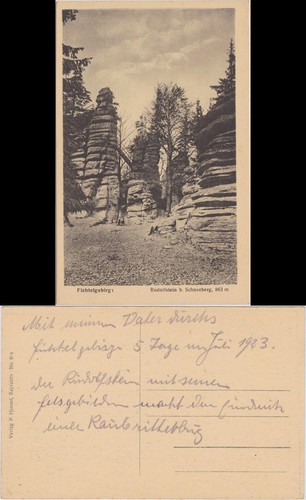 Fichtelgebirg:
Rudolfstein b. Schneeberg, 863 m
Mit meinem Vater durchs
Fichtelgebirge 5 Tage im Juli 1923.
der Rudolfstein mit seinen
Felsgebilden macht den Eindruck
einer Raubritterburg